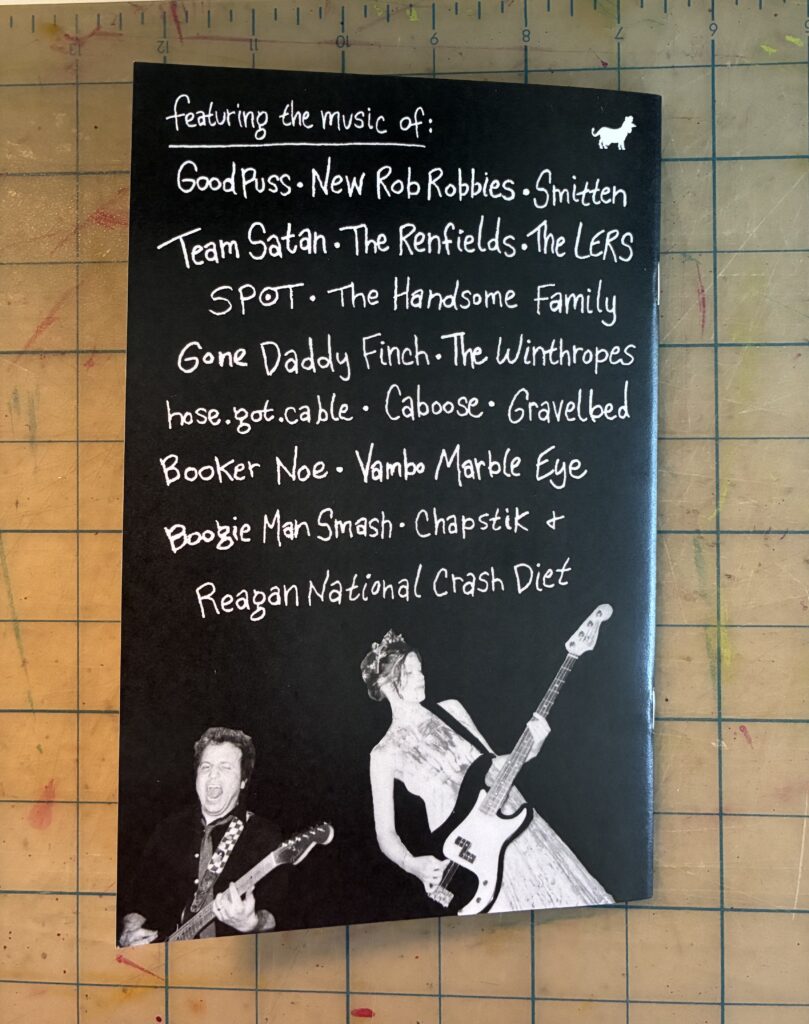 13 12 11 10 9 8 7 6 5
featuring the music of:
Good Puss • New Rob Robbies • Smitten
Team Satan • The Renfields • The LERS
SPOT • The Handsome Family
Gone Daddy Finch • The Winthropes
hose.got.cable • Caboose • Gravelbed
Booker Noe • Vambo Marble Eye
Boogie Man Smash • Chapstik &
Reagan National Crash Diet